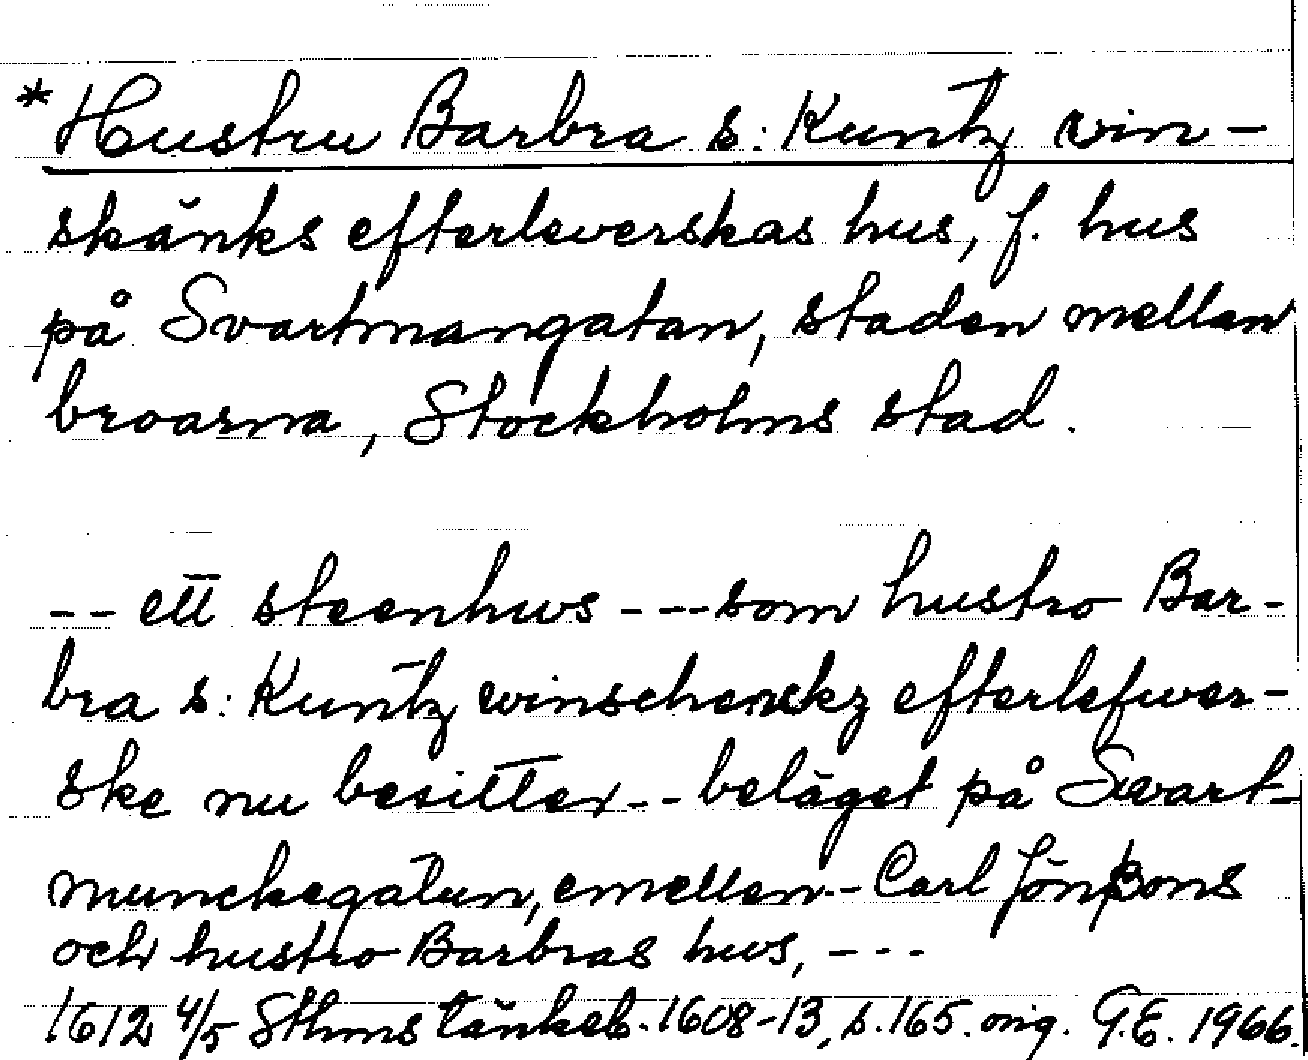 * Hustru Barbra s: Kuntz vin-
skänks efterleverskas hus, f. hus
på Svartmangatan, staden mellan
broarna, Stockholms stad.
-- ett steenhws --- som hustro Bar-
bra s: Kuntz winschenckz efterlefwer-
ske nu besitter -- beläget på Swart-
munckegatun, emellen -- Carl Jönßons
och hustro Barbras hws, ---
1612 4/5 Sthms tänkeb. 1608-13, s. 165. orig. G.E. 1966.